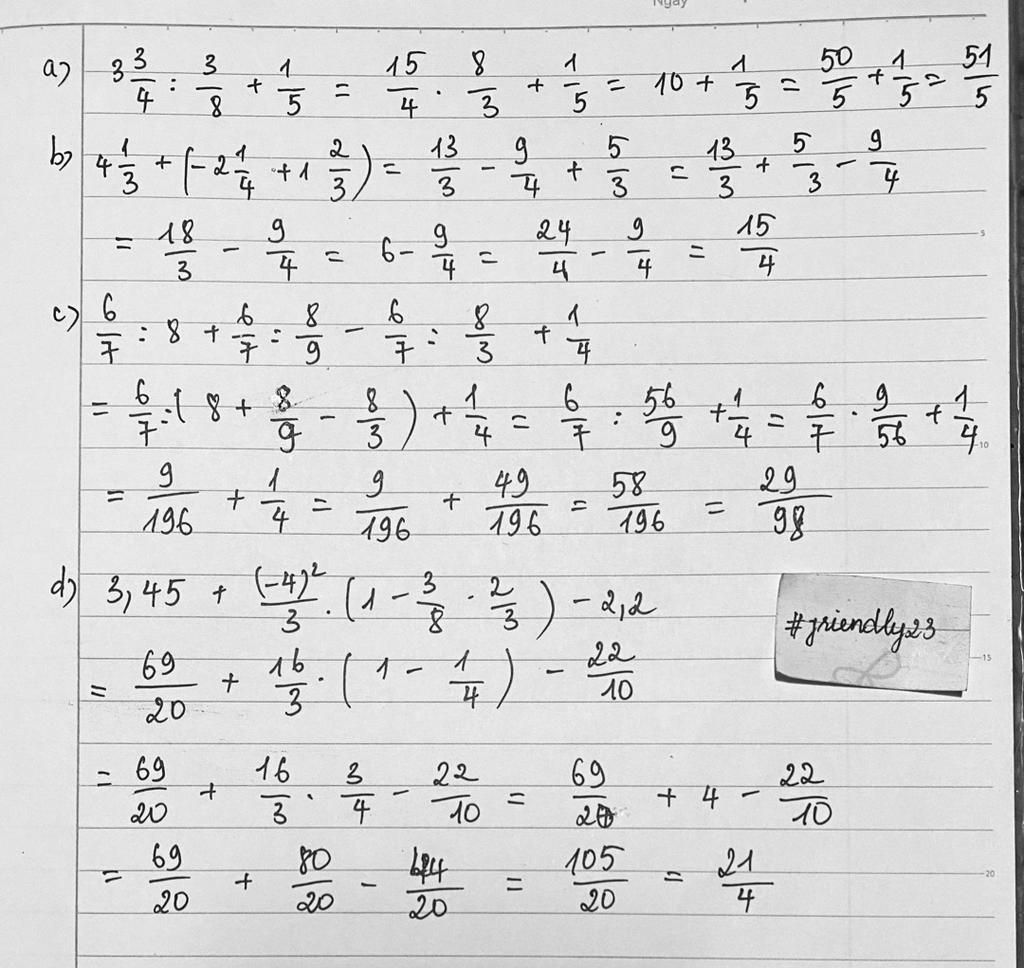 Ngày
a) 3 3/4 : 3/8 + 1/5 = 15/4 . 8/3 + 1/5 = 10 + 1/5 = 50/5 + 1/5 = 51/5
b) 4 1/3 + (-2 1/4 + 1 2/3) = 13/3 - 9/4 + 5/3 = 13/3 + 5/3 - 9/4
= 18/3 - 9/4 = 6 - 9/4 = 24/4 - 9/4 = 15/4
5
c) 6/7 : 8 + 6/7 : 8/9 - 6/7 : 8/3 + 1/4
= 6/7 : ( 8 + 8/9 - 8/3 ) + 1/4 = 6/7 : 56/9 + 1/4 = 6/7 . 9/56 + 1/4
10
= 9/196 + 1/4 = 9/196 + 49/196 = 58/196 = 29/98
d) 3,45 + (-4)²/3 . (1 - 3/8 . 2/3) - 2,2
#friendly23
= 69/20 + 16/3 . ( 1 - 1/4 ) - 22/10
15
= 69/20 + 16/3 . 3/4 - 22/10 = 69/20 + 4 - 22/10
= 69/20 + 80/20 - 44/20 = 105/20 = 21/4
20